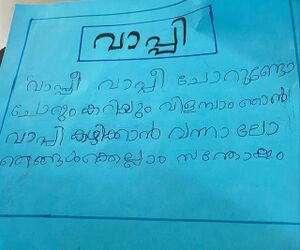 വാപ്പി
വാപ്പീ വാപ്പീ ചോറുണ്ടോ
ചോറും കറിയും വിളമ്പാം ഞാൻ
വാപ്പി കഴിക്കാൻ വന്നാ ലോ
ഞങ്ങൾക്കെല്ലാം സന്തോഷം